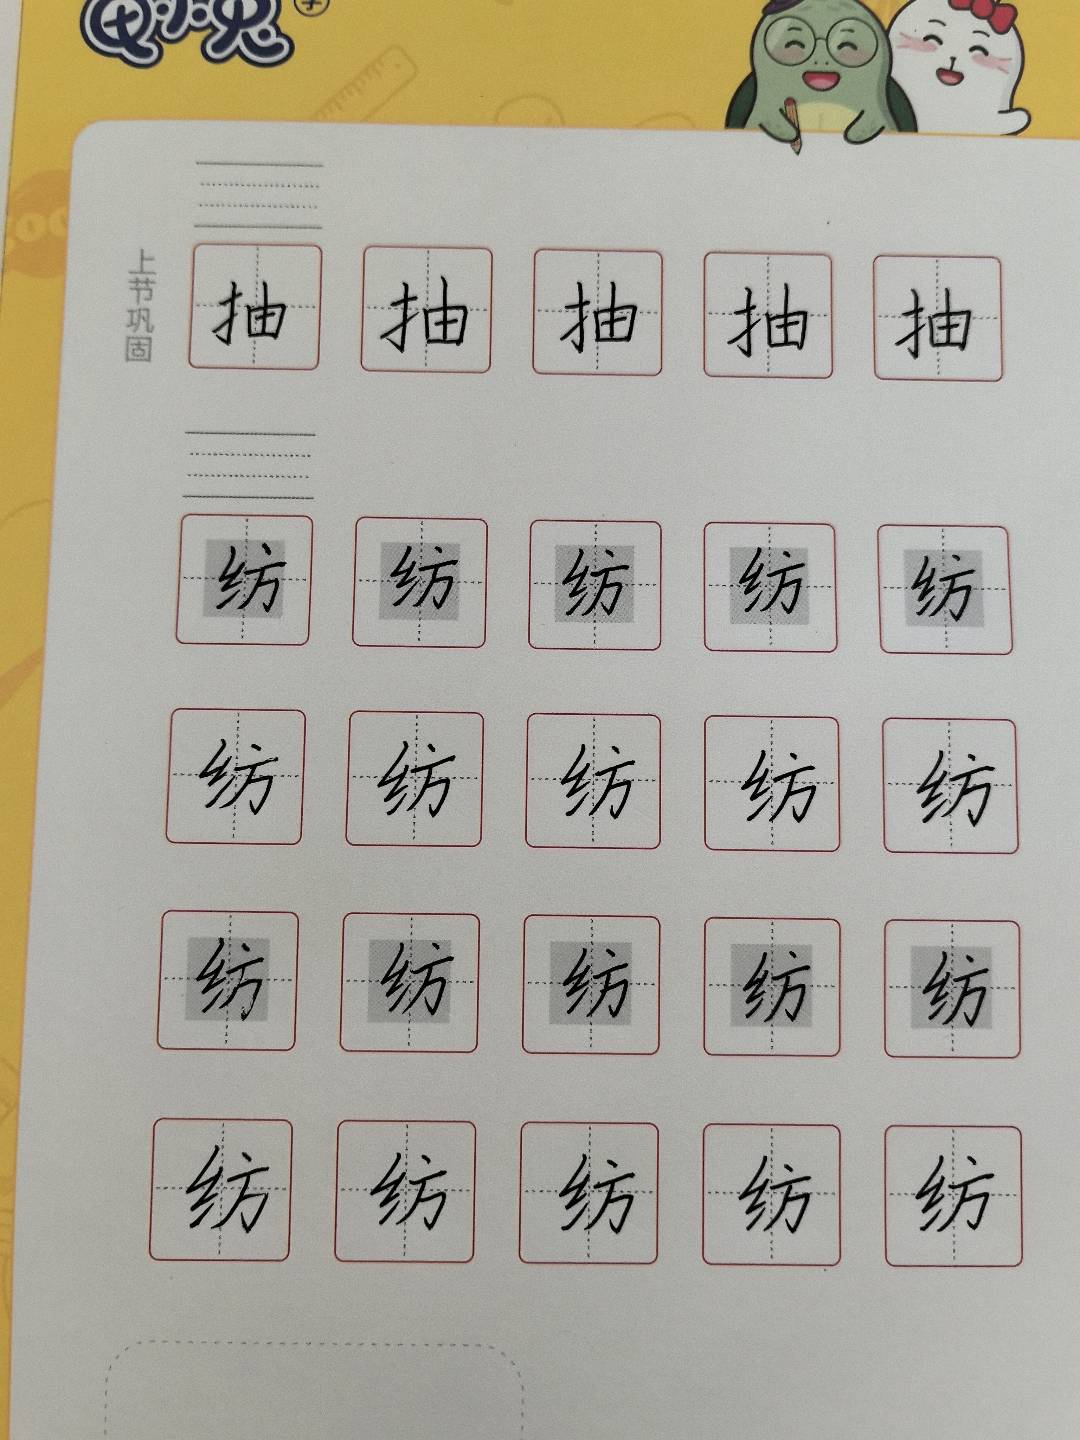 上节巩固
抽 抽 抽 抽 抽
纺 纺 纺 纺 纺
纺 纺 纺 纺 纺
纺 纺 纺 纺 纺
纺 纺 纺 纺 纺